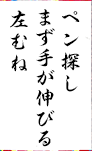 ペン探し
まず手が伸びる
左むね